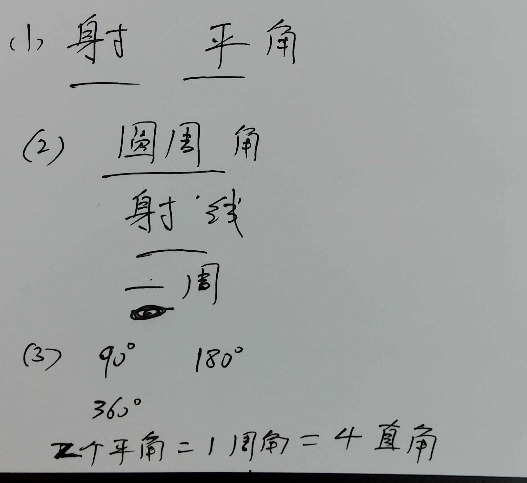 (1) 射 平角
(2) 圆周角
射线
一周
(3) 90° 180°
360°
2个平角=1周角=4直角